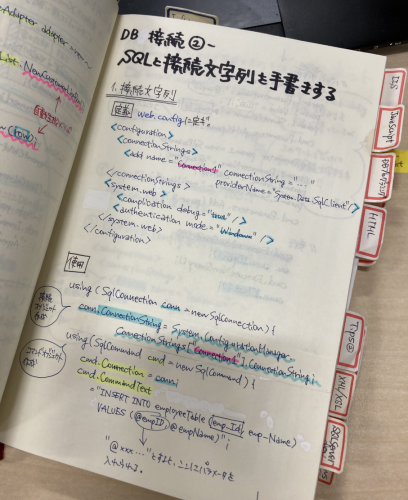 DB 接続②-
SQLと接続文字列を手書きする
1. 接続文字列
定義 web.configに定義。
<configuration>
<connectionStrings>
<add name="Connection1" connectionString="..."
providerName="System.Data.SqlClient"/>
</connectionStrings>
<system.web>
<compilation debug="true" />
<authentication mode="Windows" />
</system.web>
</configuration>
使用
using (SqlConnection conn = new SqlConnection) {
接続
作成
conn.ConnectionString = System.ConfigurationManager.
ConnectionStrings["Connection1"].ConnectionString;
using(SqlCommand cmd = new SqlCommand) {
作成
cmd.Connection = conn;
cmd.CommandText
= "INSERT INTO employeeTable (emp_Id, emp-Name)
VALUES (@empID @empName)";
"@xxx..."とすると、ここにパラメータを
入れれる。
Adapter adapter
List
IIS
JavaScript
HTML
Tips@
XML/XSL
SQLServer